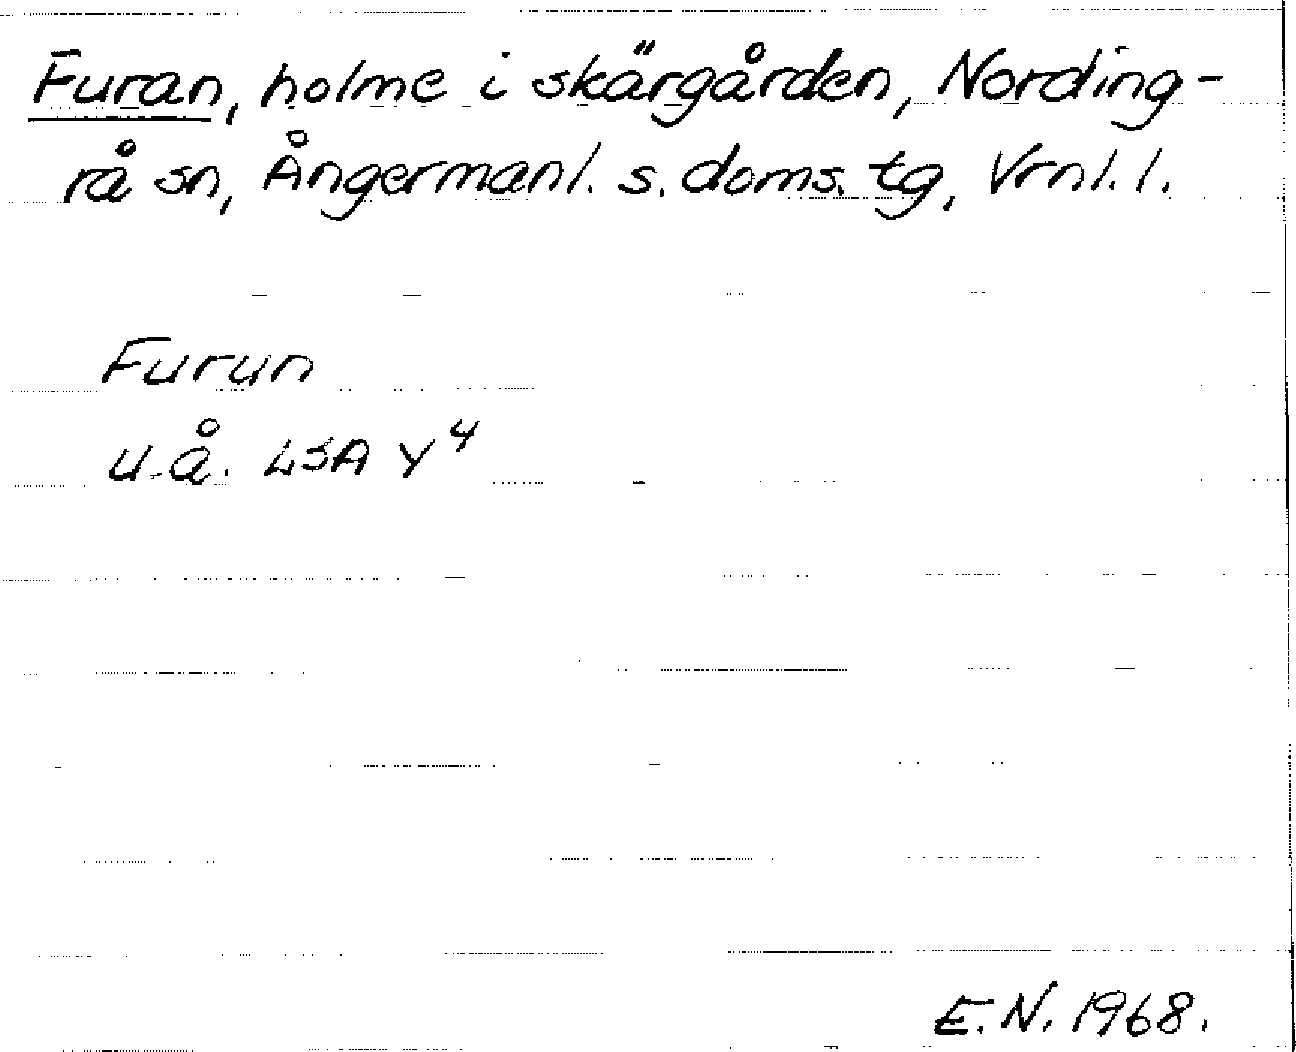 Furan, holme i skärgården, Nording-
rå sn, Ångermanl. s. doms. tg, Vrnl. l.
Furun
u.å. LSA Y4
E. N. 1968.